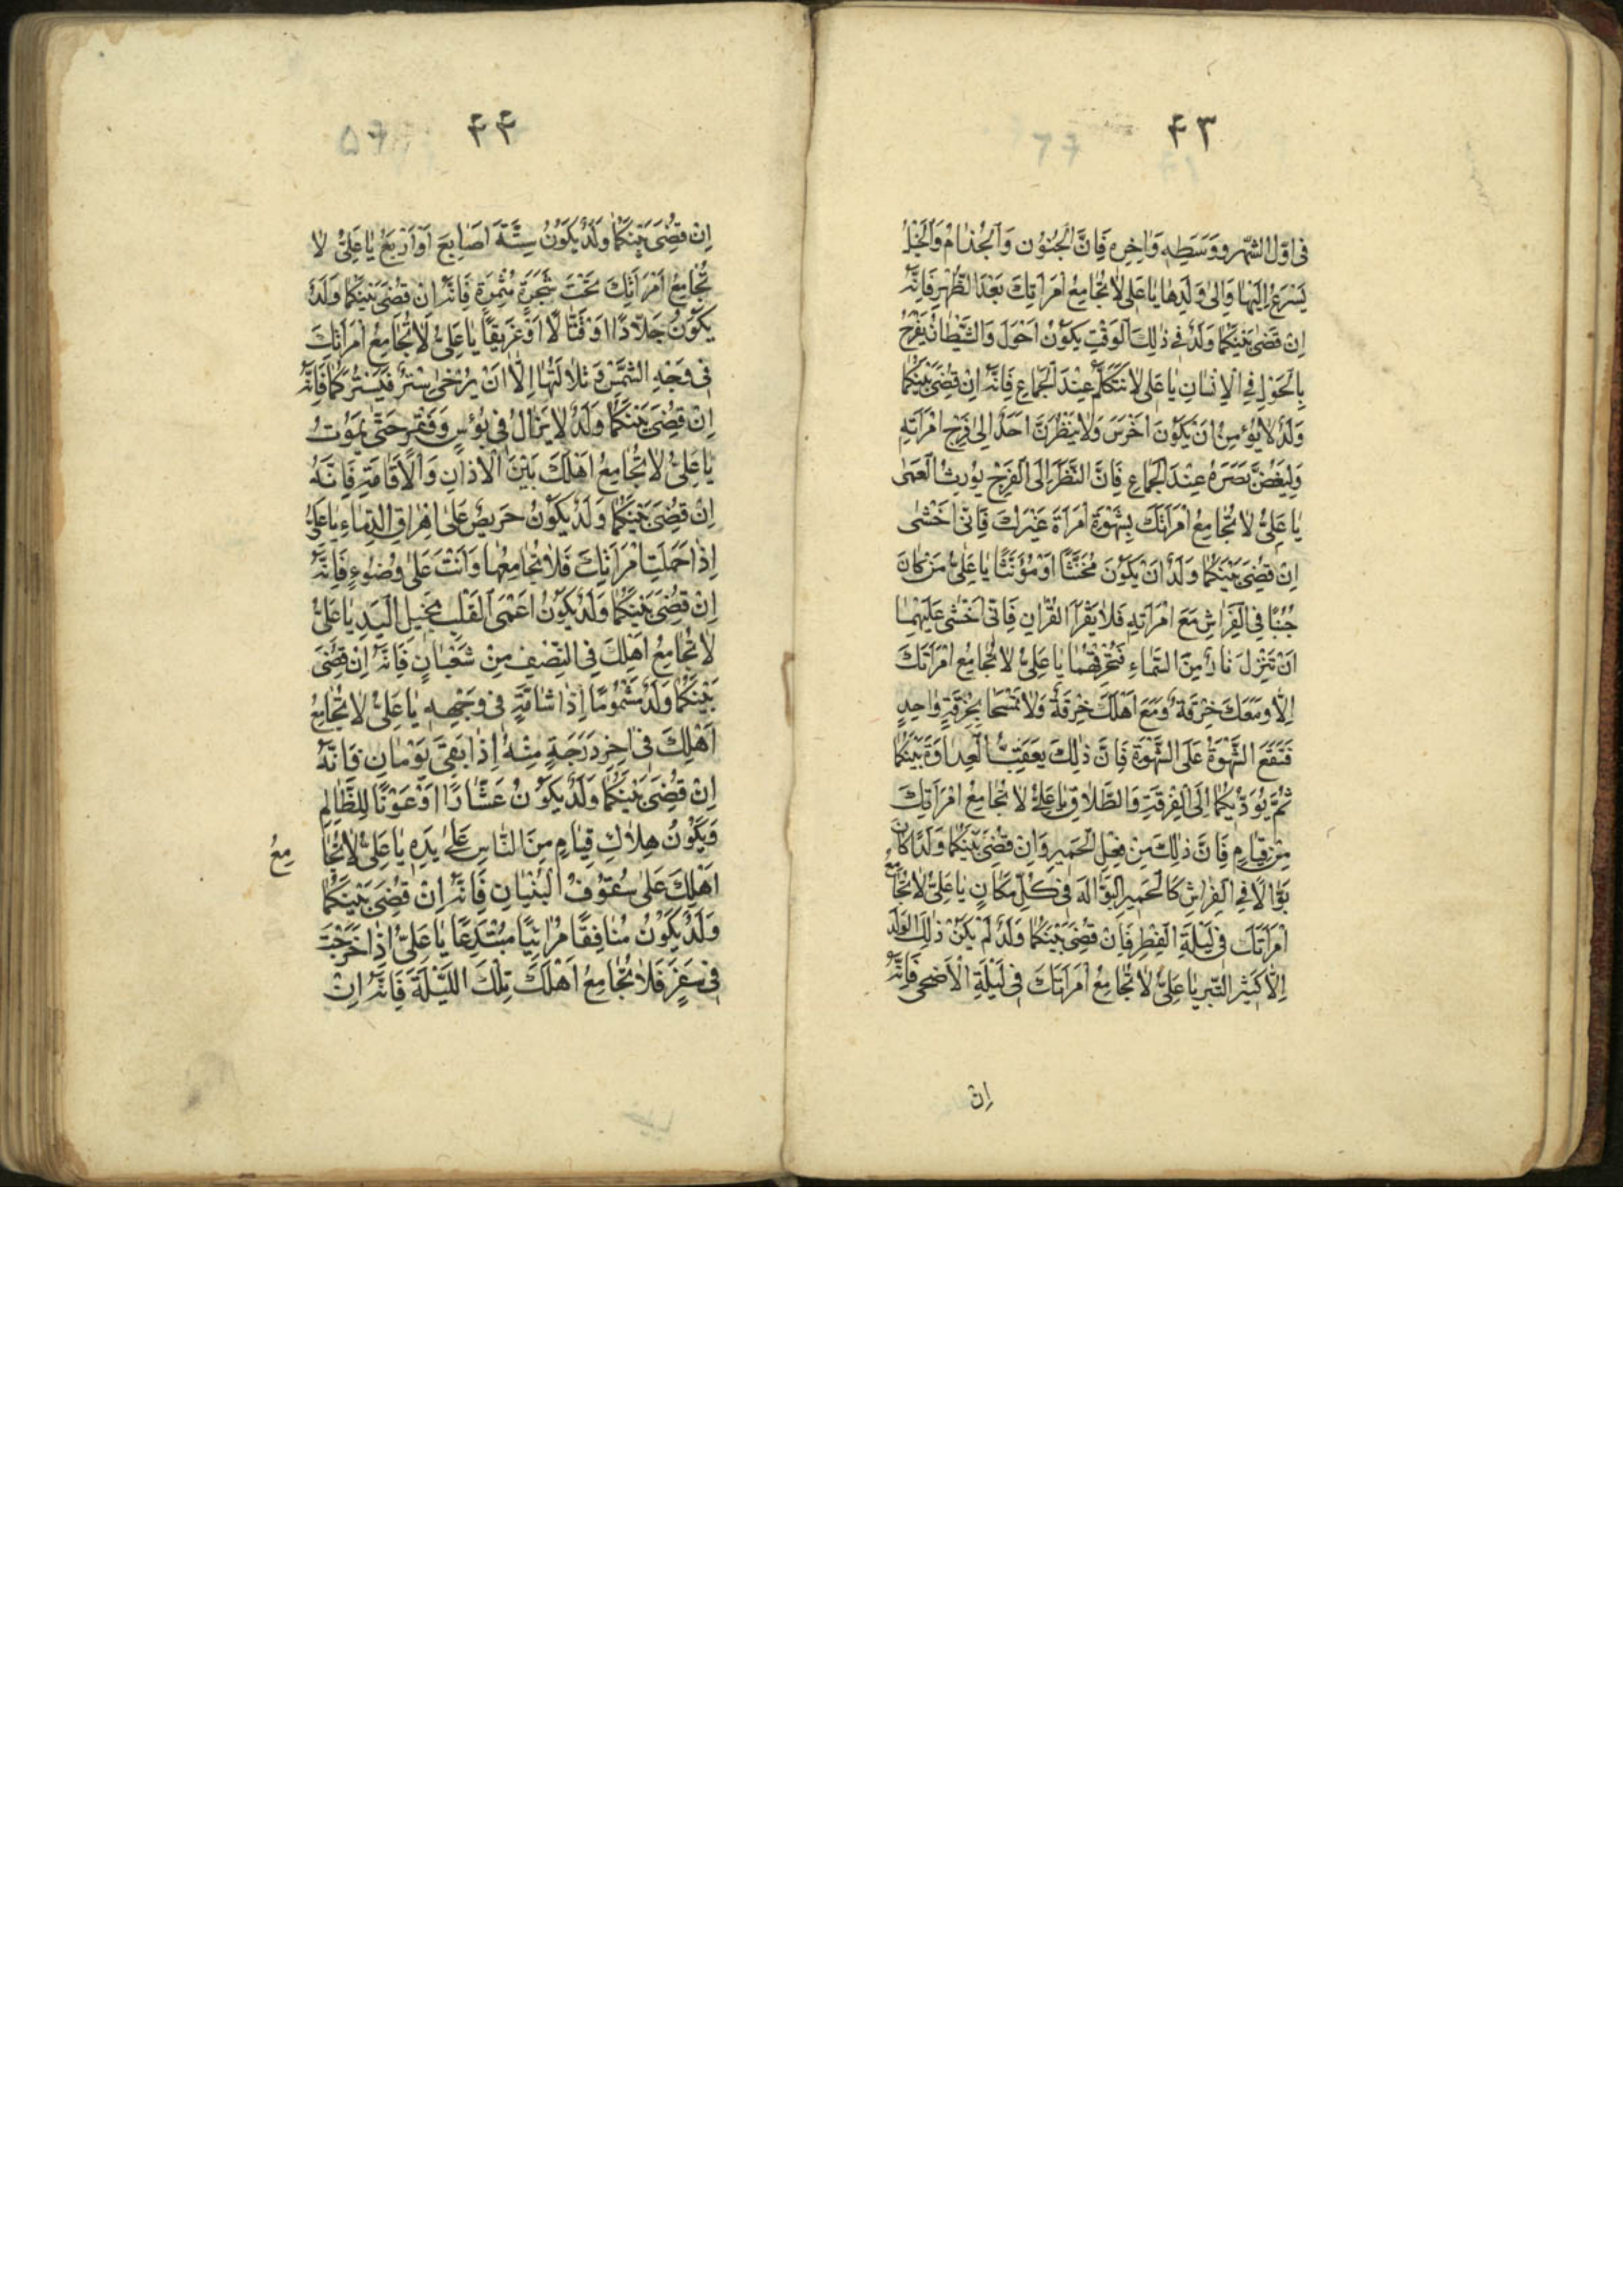 ۴۳
فى اَوَّلِ الشَّهْرِ وَوَسَطِهِ وَاٰخِرِهِ فَاِنَّ الْجُنُوْنَ وَالْجُذٰامُ وَالْخَبْلُ
يَسْرَعُ اِلَيْهٰا وَاِلىٰ وَلَدِهٰا يٰا عَلِى لاٰ تُجٰامِعْ اِمْرَاَتِكَ بَعْدَ الظُّهْرِ فَاِنَّهُ
اِنْ قَضٰى بَيْنَكُمٰا وَلَدٌ فِى ذٰلِكَ الْوَقْتِ يَكُوْنُ اَحْوَلَ وَالشَّيْطٰانُ يَفْرَحُ
بِالْحَوَلِ فِى الْاِنْسٰانِ يٰا عَلِى لاٰ تَتَكَلَّمْ عِنْدَ الْجِمٰاعِ فَاِنَّهُ اِنْ قُضِىَ بَيْنَكُمٰا
وَلَدٌ لاٰ يُؤْمِنُ اَنْ يَكُوْنَ اَخْرَسَ وَلاٰ يَنْظُرَنَّ اَحَدٌ اِلىٰ فَرْجِ امْرَاَتِهِ
وَلِيَغُضَّ بَصَرَهُ عِنْدَ الْجِمٰاعِ فَاِنَّ النَّظَرَ اِلَى الْفَرْجِ يُوْرِثُ الْعَمٰى
يٰا عَلِىُّ لاٰ تُجٰامِعْ اِمْرَاَتَكَ بِشَهْوَةِ امْرَاَةَ غَيْرِكَ فَاِنّى اَخْشٰى
اِنْ قُضِىَ بَيْنَكُمٰا وَلَدٌ اَنْ يَكُوْنَ مُخَنَّثًا اَوْ مُؤَنَّثًا يٰا عَلِىُّ مَنْ كٰانَ
جُنُبًا فِى الْفِرٰاشِ مَعَ امْرَاَتِهِ فَلاٰ يَقْرَاَ الْقُرْاٰنَ فَاِنّى اَخْشٰى عَلَيْهِمٰا
اَنْ تَنْزِلَ نٰارٌ مِنَ السَّمٰاءِ فَتُحْرِقَهُمٰا يٰا عَلِىُّ لاٰ تُجٰامِعْ امْرَاَتَكَ
اِلاّٰ وَمَعَكَ خِرْقَةٌ وَمَعَ اَهْلِكَ خِرْقَةٌ وَلاٰ تَمْسَحٰا بِخِرْقَةٍ وٰاحِدٍ
فَتَقَعَ الشَّهْوَةُ عَلَى الشَّهْوَةِ فَاِنَّ ذٰلِكَ يَعْقِبُ الْعِدٰاوَةَ بَيْنَكُمٰا
ثُمَّ يُؤَدّيكُمٰا اِلَى الْفِرْقَةِ وَالطَّلاٰقِ يٰا عَلِىُّ لاٰ تُجٰامِعْ امْرَاَتِكَ
مِنْ قِيٰامٍ فَاِنَّ ذٰلِكَ مِنْ فِعْلِ الْحَميرِ وَاِنْ قُضِىَ بَيْنَكُمٰا وَلَدًا كٰانَ
بَوّٰالاً فِى الْفِرٰاشِ كَالْحَميرِ الْبَوّٰالَه فى كُلِّ مَكٰانٍ يٰا عَلِىُّ لاٰ تُجٰامِعْ
اِمْرَاَتَكَ فى لَيْلَةِ الْفِطْرِ فَاِنْ قُضِىَ بَيْنَكُمٰا وَلَدٌ لَمْ يَكُنْ ذٰلِكَ الْوَلَدُ
اِلاّٰ كَثيرَ الشَّرِ يٰا عَلِىُّ لاٰ تُجٰامِعْ اِمْرَاَتَكَ فى لَيْلَةِ الْاَضْحىٰ فَاِنَّهُ
اِنْ
۴۴
اِنْ قُضِىَ بَيْنَكُمٰا وَلَدٌ يَكُوْنُ سِتَّةَ اَصٰابِعَ اَوْ اَرْبَعَ يٰا عَلِىُّ لاٰ
تُجٰامِعْ اِمْرَاَتِكَ تَحْتَ شَجَرَةٍ مُثْمِرَةٍ فَاِنَّهُ اِنْ قُضِىَ بَيْنَكُمٰا وَلَدٌ
يَكُوْنُ جَلاّٰدًا اَوْ قَتّٰالاً اَوْ عَريقًا يٰا عَلِىُّ لاٰ تُجٰامِعْ اِمْرَاَتِكَ
فى وَجْهِ الشَّمْسِ وَتَلاٰلَئِهٰا اِلاّٰ اَنْ يُرْخىٰ سِتْرٌ فَيَسْتُرُكُمٰا فَاِنَّهُ
اِنْ قُضِىَ بَيْنَكُمٰا وَلَدٌ لاٰ يَزٰالُ فى بُؤْسٍ وَفَقْرٍ حَتّٰى يَمُوْتُ
يٰا عَلِىُّ لاٰ تُجٰامِعْ اَهْلَكَ بَيْنَ الْاَذٰانِ وَالْاِقٰامَةِ فَاِنَّهُ
اِنْ قُضِىَ بَيْنَكُمٰا وَلَدٌ يَكُوْنُ حَريصٌ عَلىٰ اِهْرٰاقِ الدِّمٰاءِ يٰا عَلِىُّ
اِذٰا حَمَلَتِ امْرَاَتِكَ فَلاٰ تُجٰامِعْهٰا وَاَنْتَ عَلىٰ وُضُوْءٍ فَاِنَّهُ
اِنْ قُضِىَ بَيْنَكُمٰا وَلَدٌ يَكُوْنُ اَعْمَى الْقَلْبِ بَخيلَ الْيَدِ يٰا عَلِىُّ
لاٰ تُجٰامِعْ اَهْلِكَ فِى النِّصْفِ مِنْ شَعْبٰانٍ فَاِنَّهُ اِنْ قُضِىَ
بَيْنَكُمٰا وَلَدٌ مَشْمُومًا اِذٰا شٰامَةٍ فى وَجْهِهِ يٰا عَلِىُّ لاٰ تُجٰامِعْ
اَهْلِكَ فى اٰخِرِ دَرَجَةٍ مِنْهُ اِذٰا بَقِىَ يَوْمٰانِ فَاِنَّهُ
اِنْ قُضِىَ بَيْنَكُمٰا وَلَدٌ يَكُوْنُ عَشّٰارًا اَوْ عَوْنًا لِلظّٰالِمِ
وَيَكُوْنُ هِلاٰكِ قِيٰامٍ مِنَ النّٰاسِ عَلىٰ يَدِهِ يٰا عَلِىُّ لاٰ تُجٰا مِعْ
اَهْلِكَ عَلىٰ سُقُوْفِ الْبُنْيٰانِ فَاِنَّهُ اِنْ قُضِىَ بَيْنَكُمٰا
وَلَدٌ يَكُوْنُ مُنٰافِقًا مُرٰائِيًا مُبْتَدِعًا يٰا عَلِىُّ اِذٰا خَرَجْتَ
فى سَفَرٍ فَلاٰ تُجٰامِعْ اَهْلَكَ تِلْكَ اللَّيْلَةَ فَاِنَّهُ اِنْ